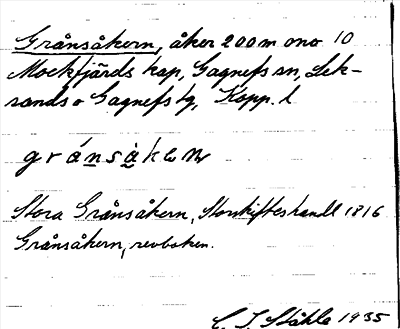 Grånsåkern, åker 200 m ono 10
Mockfjärds kap, Gagnefs sn, Lek-
sands o Gagnefs tg, Kopp. l
gránsàkɘɳ
Stora Grånsåkern, Storskifteshandl 1816
Grånsåkern, revboken.
C. I. Ståhle 1935